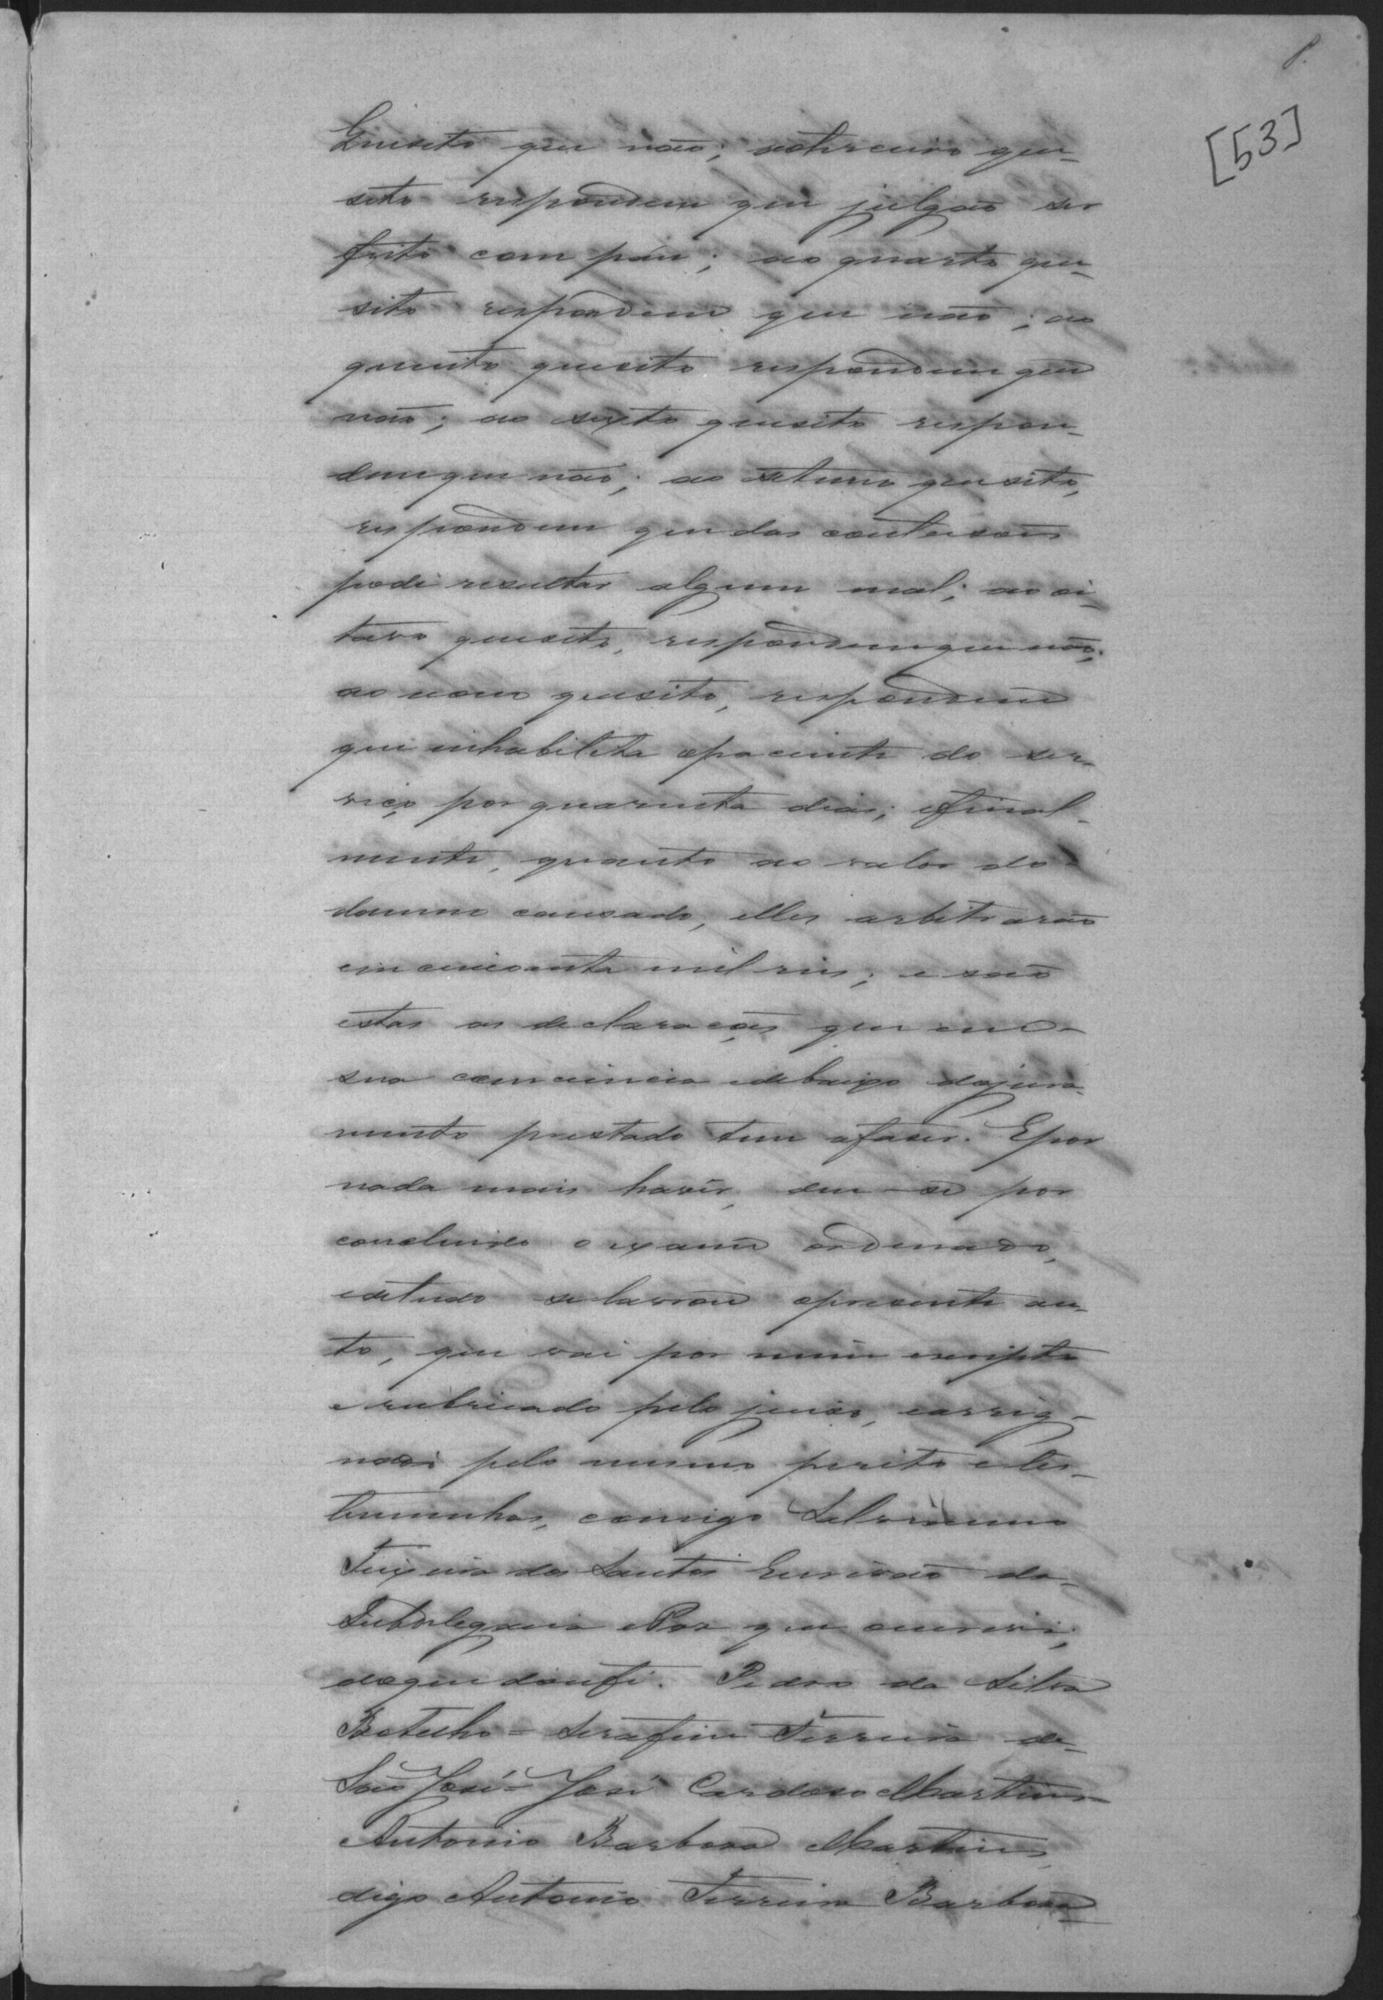 8.
[53]
Quesito que não; ao terceiro que-
sito respondem que julgão ser
feito com páu; ao quarto que-
sito respondem que não; ao
quinto quesito respondem que
não; ao sexto quesito respon-
dem que não; ao setimo quesito,
respondem que das contusões
pode resultar algum mal; ao oi-
tavo quesito, respondem que não;
ao nono quesito, respondem
que inhabilita o paciente do ser-
viço por quarenta dias; e final-
mente, quanto ao valor do
damno causado, elles arbitrarão
em cincoenta mil reis; e são
estas as declarações que em
sua consciencia e debaixo do jura-
mento prestado tem a fazer. E por
nada mais haver, deu-se por
concluido o exame ordenado,
e de tudo se lavrou o presente au-
to, que vai por mim escripto
e rubricado pelo juiz, e assig-
nado pelo mesmo perito e tes-
timunhas, comigo
Teixeira dos Santos Escrivão da
Subdelegacia que escrevi,
do que dou fé. Pedro da Silva
Botelho = Serafim Ferreira de
São José = José Cardoso Martins
Antonio Barbosa Martins,
digo Antonio Ferreira Barbosa